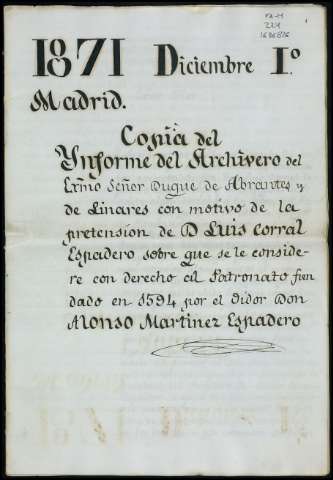 1871 Diciembre 1º
Madrid.
Copia del
Ynforme del Archivero del
Exmo Señor Duque de Abrantes y
de Linares con motivo de la
pretension de D Luis Corral
Espadero sobre que se le conside-
re con derecho al Patronato fun
dado en 1594 por el Oidor Don
Alonso Martinez Espadero